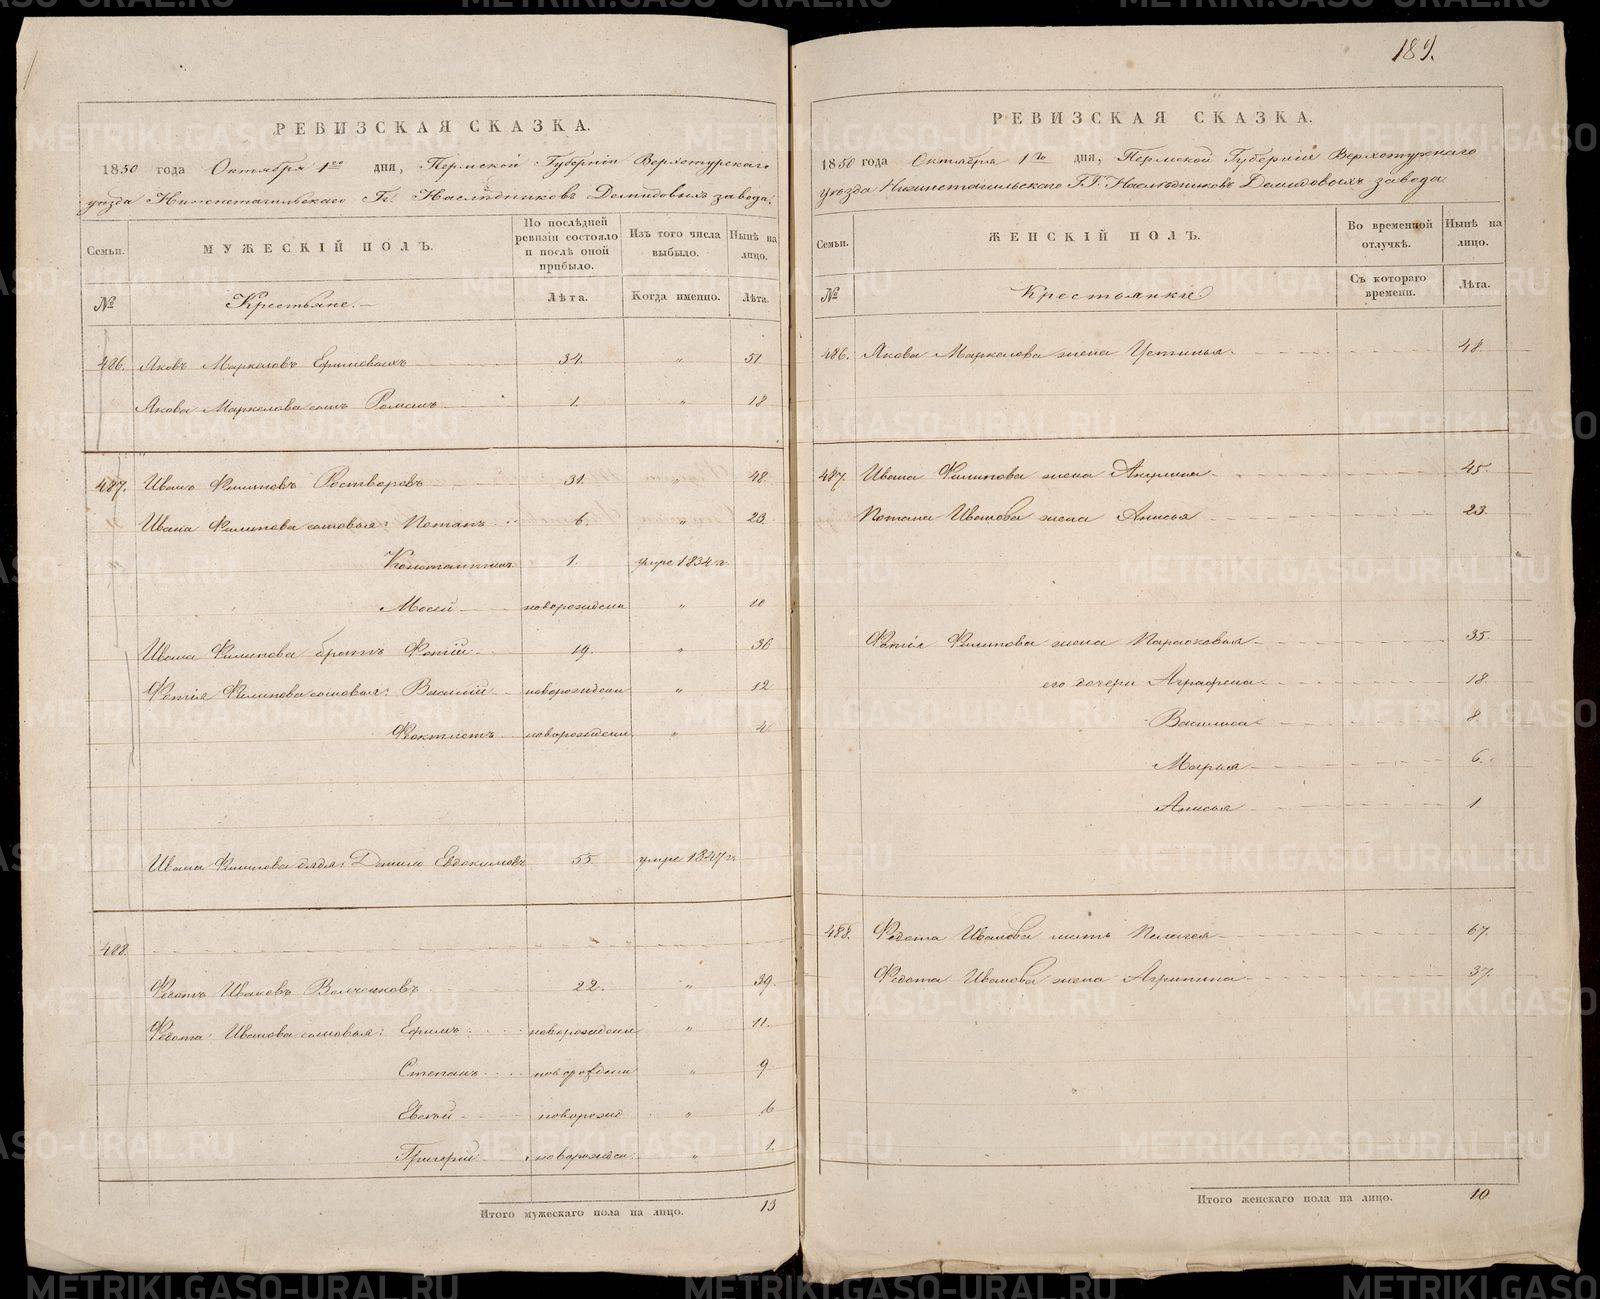 189.
РЕВИЗСКАЯ СКАЗКА.
1850 года Октября 1го дня, Пермской Губерніи Верхотурскаго
уѣзда Нижнетагильскаго Гг. Наслѣдниковъ Демидовыхъ завода,
Семьи. МУЖЕСКІЙ ПОЛЪ. По послѣдней ревизіи состояло и послѣ оной прибыло. Изъ того числа выбыло. Нынѣ на лицо.
№ Крестьяне. Лѣта. Когда именно. Лѣта.
486. Яковъ Маркеловъ Ефимовыхъ 34. " 51
Якова Маркелова сынъ Романъ 1. " 18
487. Иванъ Филиповъ Растворовъ 31. " 48.
Ивана Филипова сыновья: Потапъ 6. " 23.
Константинъ 1. умре 1834 г.
Мосей новорожденн " 10
Ивана Филипова братъ Фотій 19. " 36
Фотія Филипова сыновья: Василій новорожденн " 12
Феоктистъ новорожденн " 4
Ивана Филипова дядя: Данило Евдокимовъ 55. умре 1847 г.
488.
Федотъ Ивановъ Волченковъ 22. " 39.
Федота Иванова сыновья: Ефимъ новорожденн " 11.
Степанъ новорожденн " 9
Евсѣй новорожд " 6
Григорій новорожден " 1.
Итого мужескаго пола на лицо. 13
РЕВИЗСКАЯ СКАЗКА.
1850 года Октября 1го дня, Пермской Губерніи Верхотурскаго
уѣзда Нижнетагильскаго ГГ. Наслѣдниковъ Демидовыхъ завода
Семьи. ЖЕНСКІЙ ПОЛЪ. Во временной отлучкѣ. Нынѣ на лицо.
№ Крестьянки Съ котораго времени. Лѣта.
486. Якова Маркелова жена Устинья 48.
487. Ивана Филипова жена Акулина 45.
Потапа Иванова жена Анисья 23.
Фотія Филипова жена Парасковья 35.
его дочери Аграфена 18
Василиса 8
Марья 6.
Анисья 1
488. Федота Иванова мать Пелагея 67.
Федота Иванова жена Агрипина 37.
Итого женскаго пола на лицо. 10
METRIKI.GASO-URAL.RU